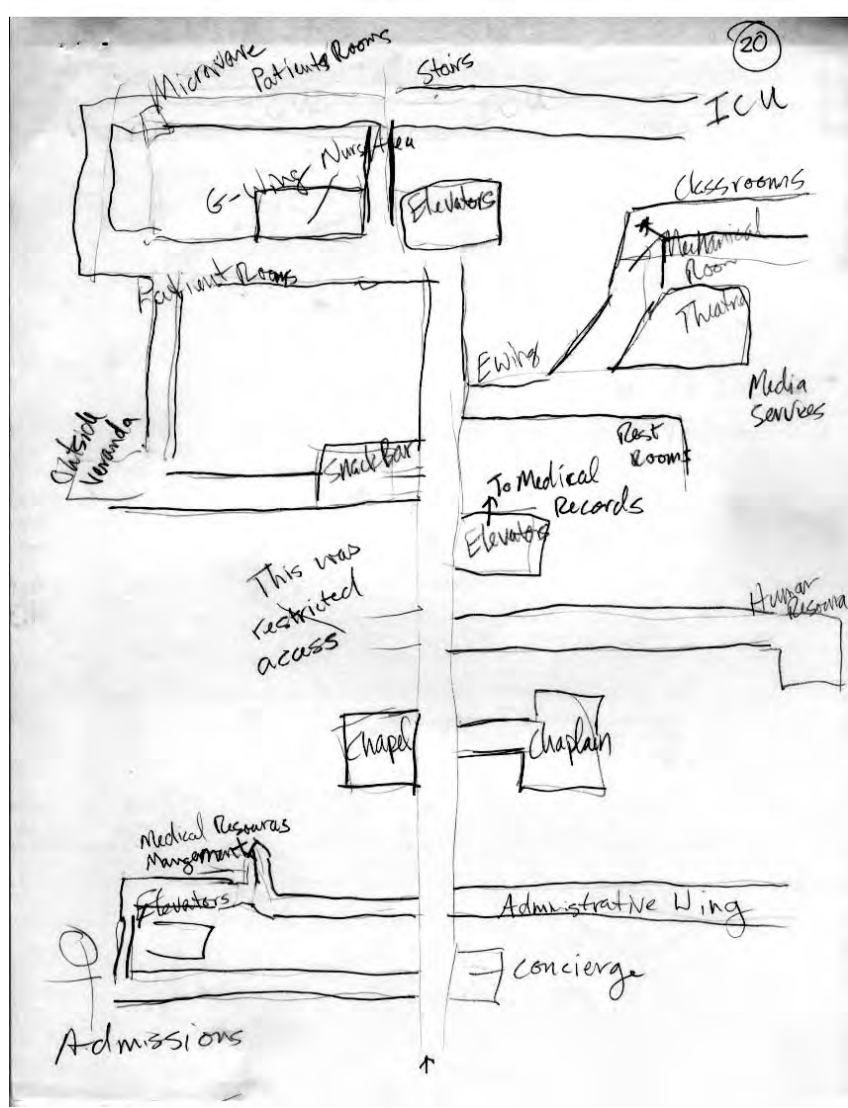 20
Microwave
Patients Rooms
Stairs
ICU
Nurs Area
G-Wing
Elevators
Classrooms
Mechanical
Room
Theatre
Patient Rooms
E wing
Media
Services
Outside
Veranda
Snack Bar
Rest
Rooms
To Medical
Records
Elevators
This was
restricted
access
Human
Resource
Chapel
Chaplain
Medical Resources
Mangement
Elevators
Administrative Wing
Concierge
Admissions